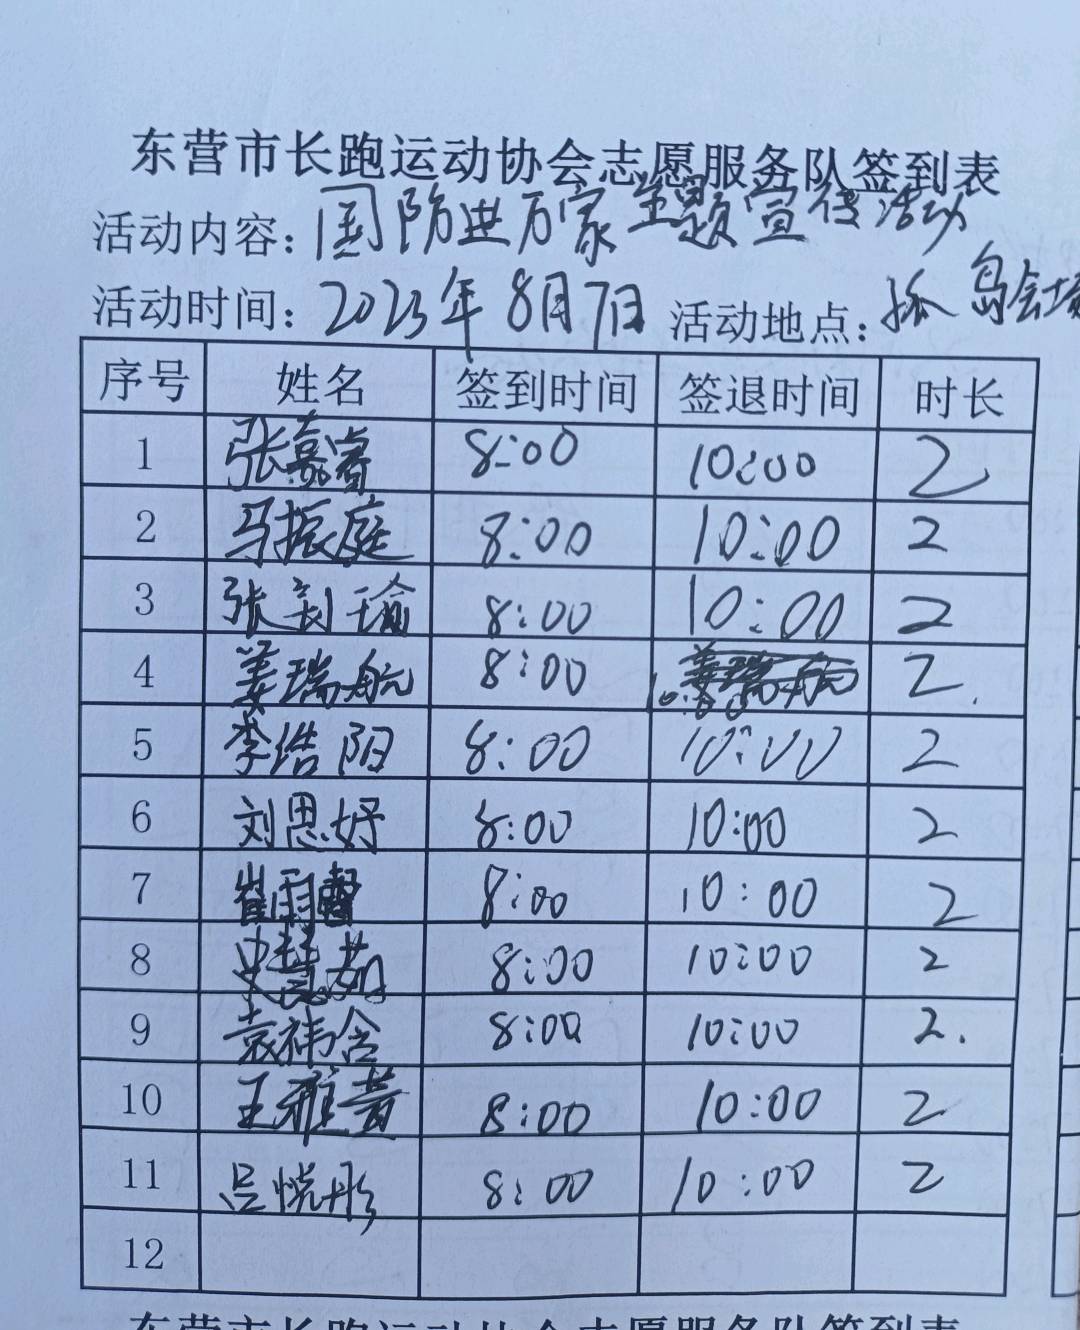 东营市长跑运动协会志愿服务队签到表
活动内容：国防进万家主题宣传活动
活动时间：2023年8月7日 活动地点：孤岛会场
序号 姓名 签到时间 签退时间 时长
1 张嘉睿 8:00 10:00 2
2 马振庭 8:00 10:00 2
3 张 瑜 8:00 10:00 2
4 姜瑞航 8:00 10:00 2
5 李浩阳 8:00 10:00 2
6 刘思妤 8:00 10:00 2
7 崔雨馨 8:00 10:00 2
8 史慧茹 8:00 10:00 2
9 袁祎含 8:00 10:00 2
10 王雅 8:00 10:00 2
11 吕悦彤 8:00 10:00 2
12
东营市长跑运动协会志愿服务队签到表